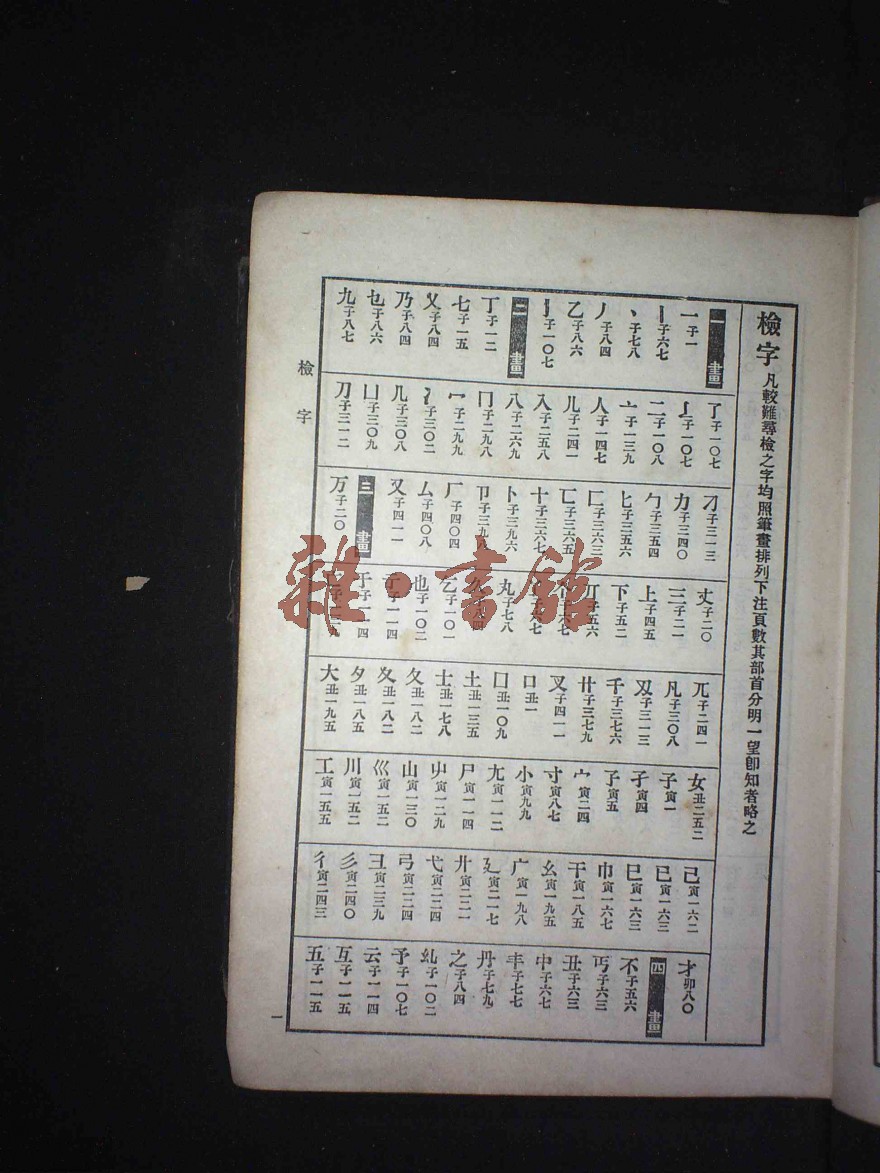 檢字 凡較難尋檢之字均照筆畫排列下注頁數其部首分明一望卽知者略之
一畫
一 子一
丨 子六七
丶 子七八
丿 子八四
乙 子八六
亅 子一〇七
二畫
丁 子一二
七 子一五
乂 子八四
乃 子八四
乜 子八六
九 子八七
了 子一〇七
子一〇七
二 子一〇八
亠 子一三九
人 子一四七
儿 子二四一
入 子二五八
八 子二六九
冂 子二九八
冖 子二九九
冫 子三〇二
几 子三〇八
凵 子三〇九
刀 子三一二
刁 子三一三
力 子三四〇
勹 子三五四
匕 子三五六
匚 子三六三
匸 子三六五
十 子三六七
卜 子三九六
卩 子三九八
厂 子四〇四
厶 子四〇八
又 子四一一
三畫
万 子二〇
丈 子二〇
三 子二一
上 子四五
下 子五二
丌 子五六
丸 子七八
乞 子一〇一
也 子一〇二
于 子一一四
兀 子二四一
凡 子三〇八
刄 子三一三
千 子三七六
卄 子三七九
叉 子四一一
口 丑一
囗 丑一〇九
土 丑一三五
士 丑一七八
夂 丑一八二
夊 丑一八二
夕 丑一八五
大 丑一九五
女 丑二五二
子 寅一
孑 寅四
孓 寅五
宀 寅二四
寸 寅八七
小 寅九九
尢 寅一一二
尸 寅一一四
屮 寅一二九
山 寅一三〇
巛 寅一五二
川 寅一五二
工 寅一五五
己 寅一六二
已 寅一六三
巳 寅一六三
巾 寅一六七
干 寅一八五
幺 寅一九五
广 寅一九八
廴 寅二一七
廾 寅二二一
弋 寅二二四
弓 寅二二四
彐 寅二三九
彡 寅二四〇
彳 寅二四三
才 卯八〇
四畫
不 子五六
丐 子六三
丑 子六三
中 子六七
丰 子七七
丹 子七九
之 子八四
乣 子一〇二
予 子一〇七
云 子一一四
互 子一一五
五 子一一五
檢字
一
雜·書館